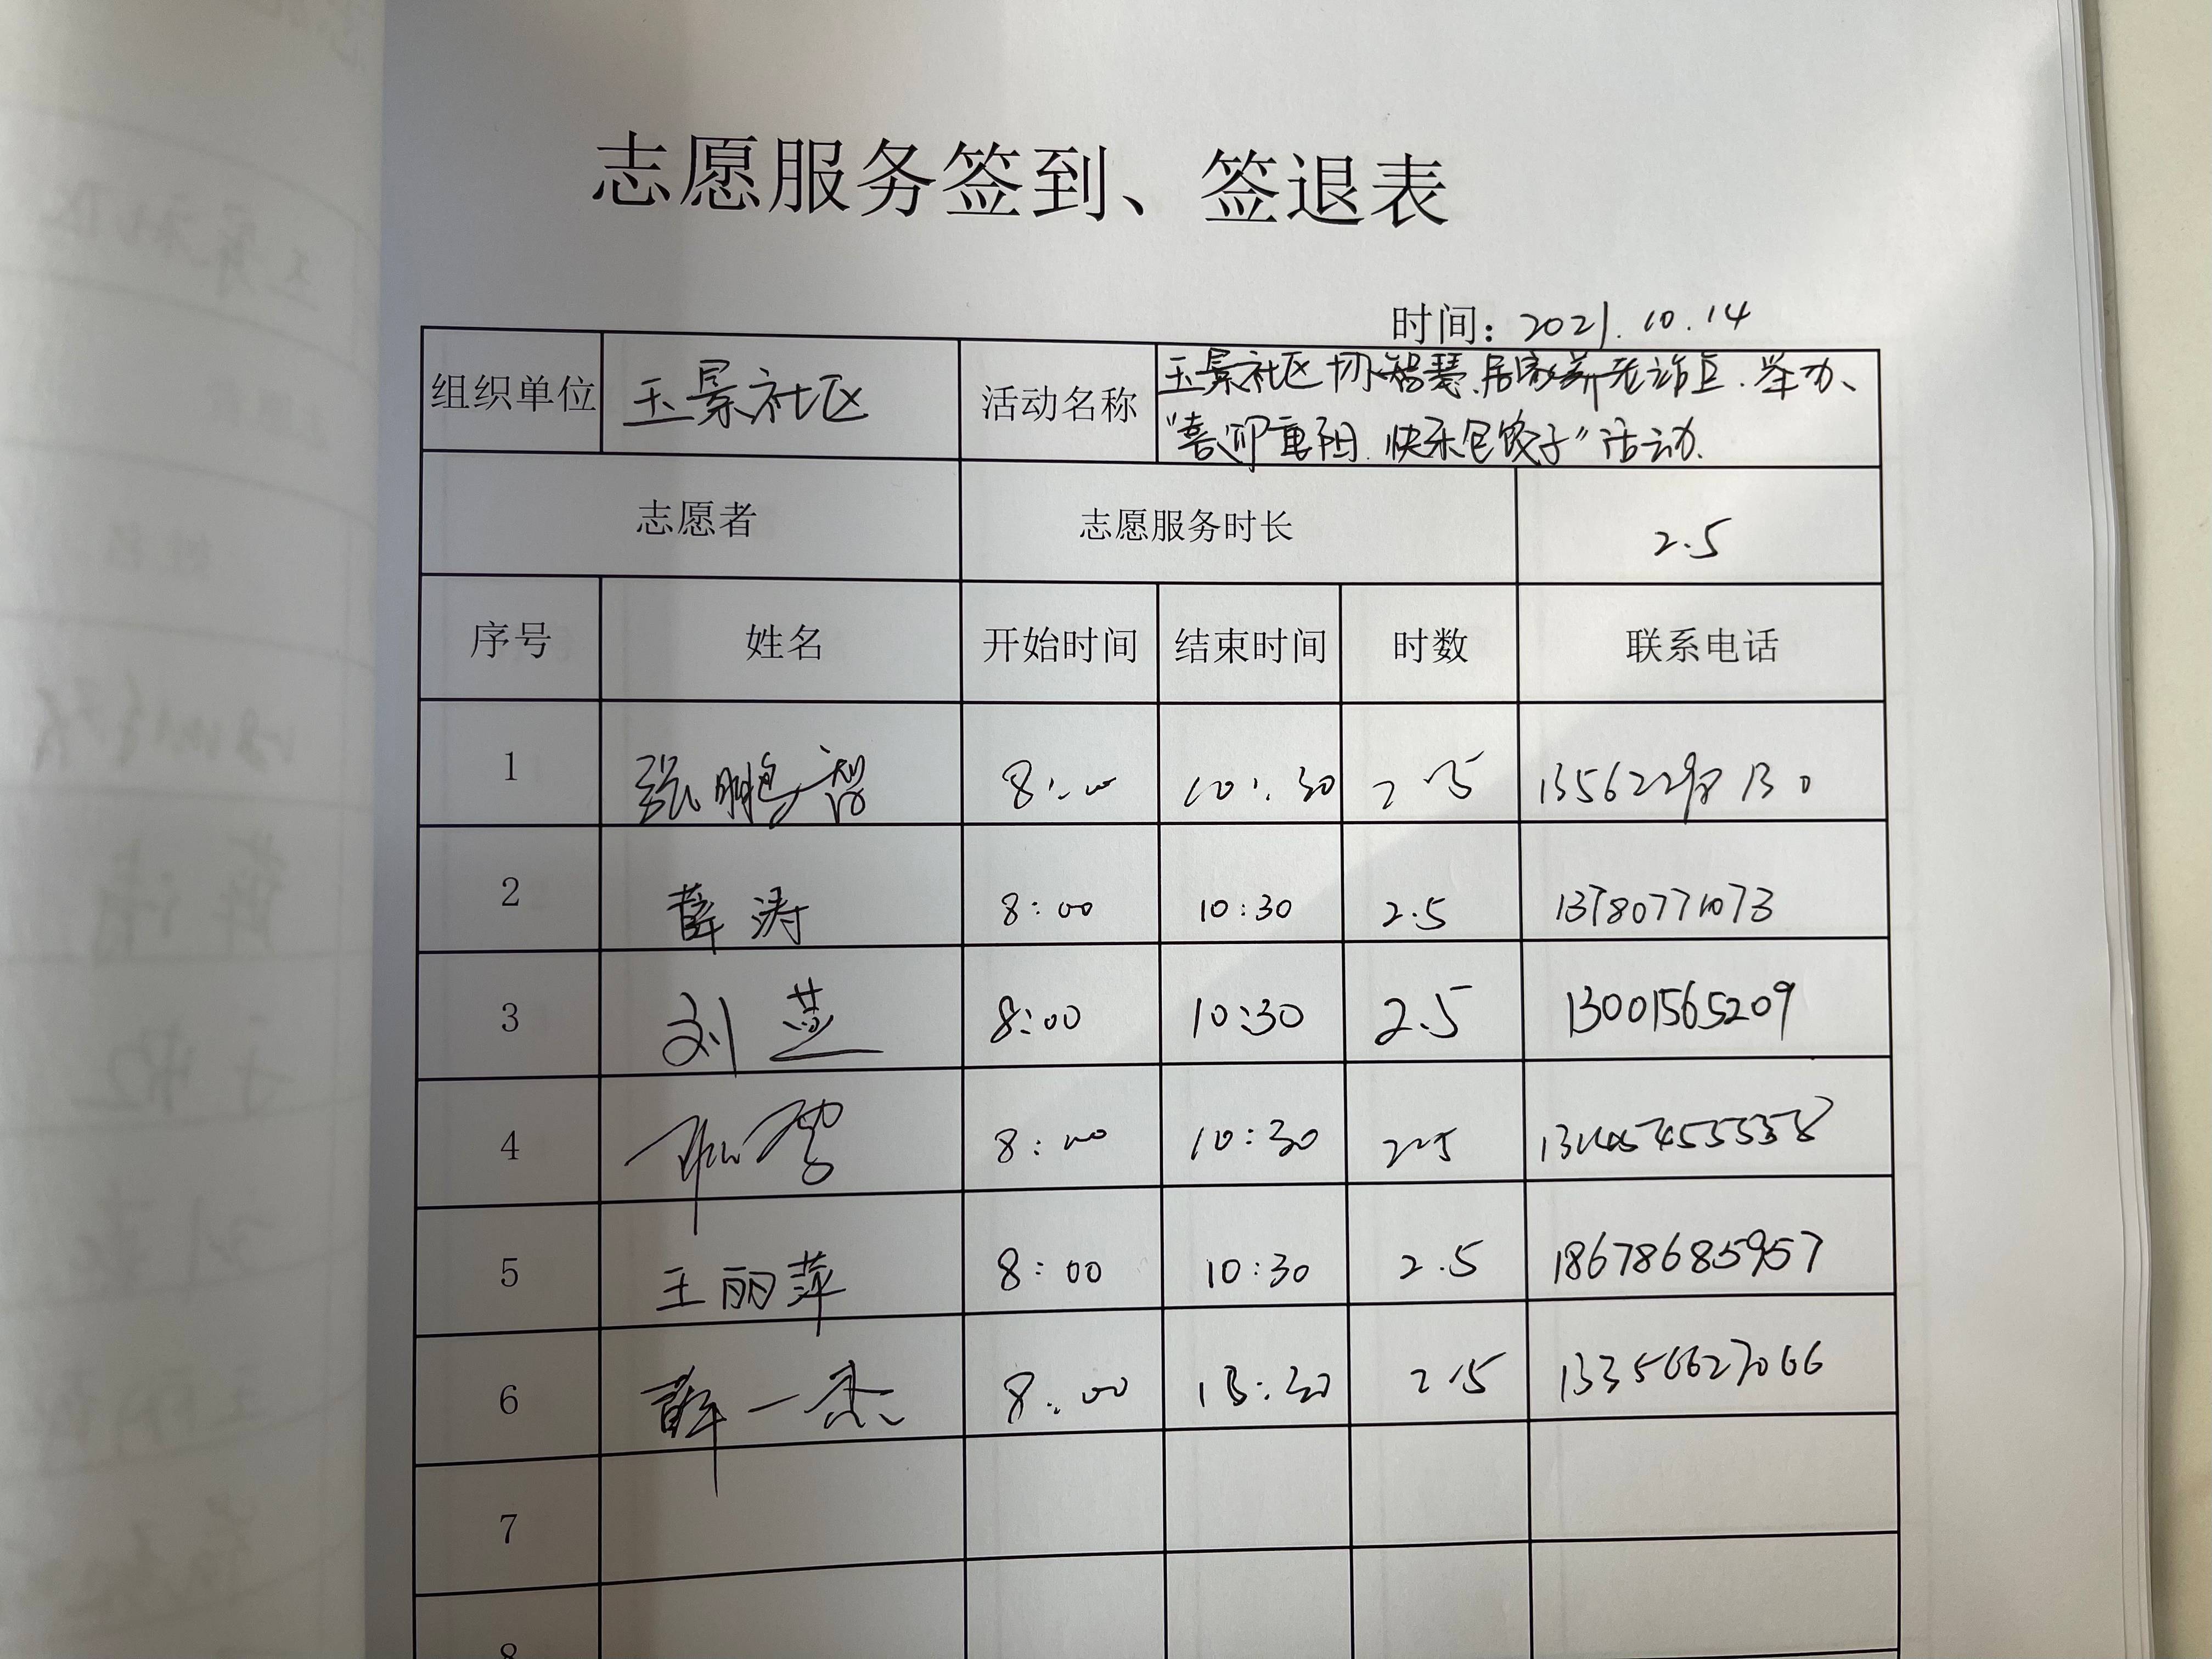 志愿服务签到、签退表
时间：2021.10.14
组织单位 玉景社区 活动名称 玉景社区 智慧居家养老 举办、
“喜迎重阳 快乐包饺子”活动.
志愿者 志愿服务时长 2.5
序号 姓名 开始时间 结束时间 时数 联系电话
1 张鹏智 8:00 10:30 2.5
2 薛涛 8:00 10:30 2.5 13780771073
3 刘 8:00 10:30 2.5 13001565209
4 8:00 10:30 2.5
5 王丽萍 8:00 10:30 2.5 18678685957
6 薛一杰 8:00 2.5 13356627066
7
8